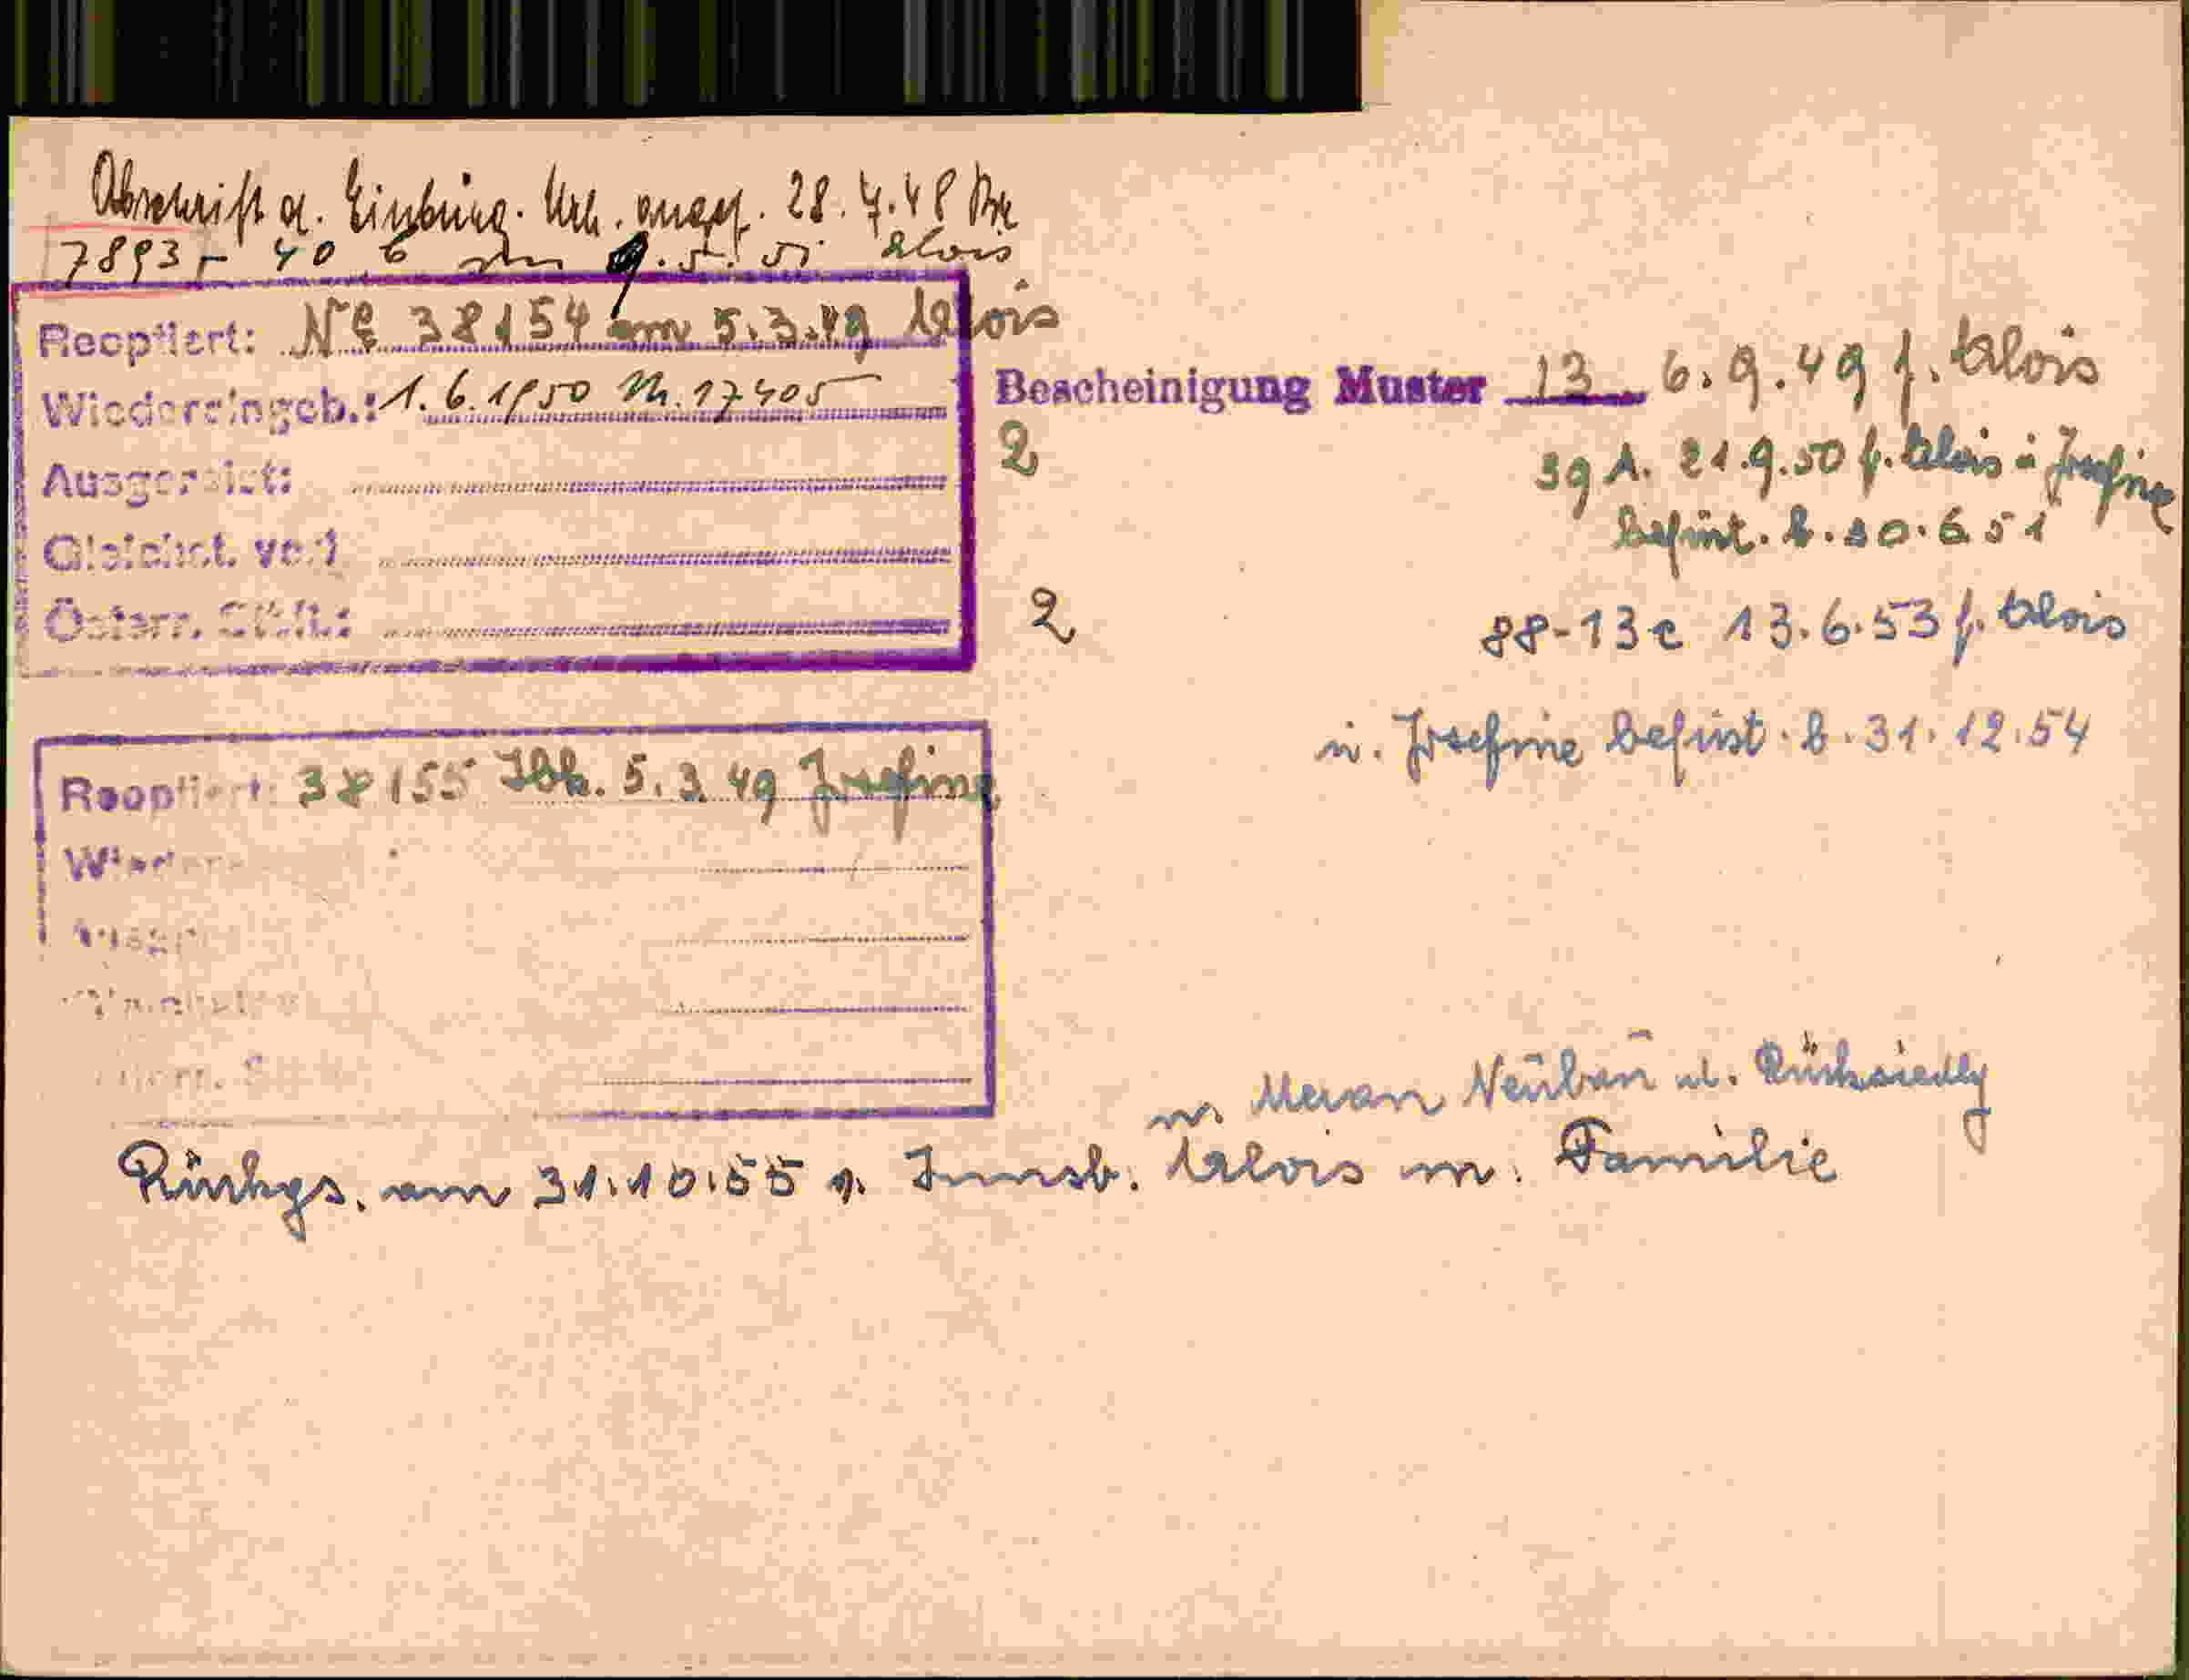 Abschrift d. Einbürg. Urk. 28.7.48
7893 - 40 6 9.5.51 Alois
Reoptiert: No 38154 am 5.3.49 Alois
Wiedereingeb.: 1.6.1950 Nr. 17405
Ausgereist:
Gleichst. verl
Österr. Stb.:
Bescheinigung Muster 13 6.9.49 f. Alois
2 39 A. 21.9.50 f. Alois u Josefine
befrist. b. 30.6.51
2 88-13c 13.6.53 f. Alois
u. Josefine befrist. b. 31.12.54
Reoptiert: 38155 Ibk. 5.3.49 Josefine
n. Meran Neubau d. Rücksiedlg
Rückgs. am 31.10.55 v. Innsb. Alois m. Familie